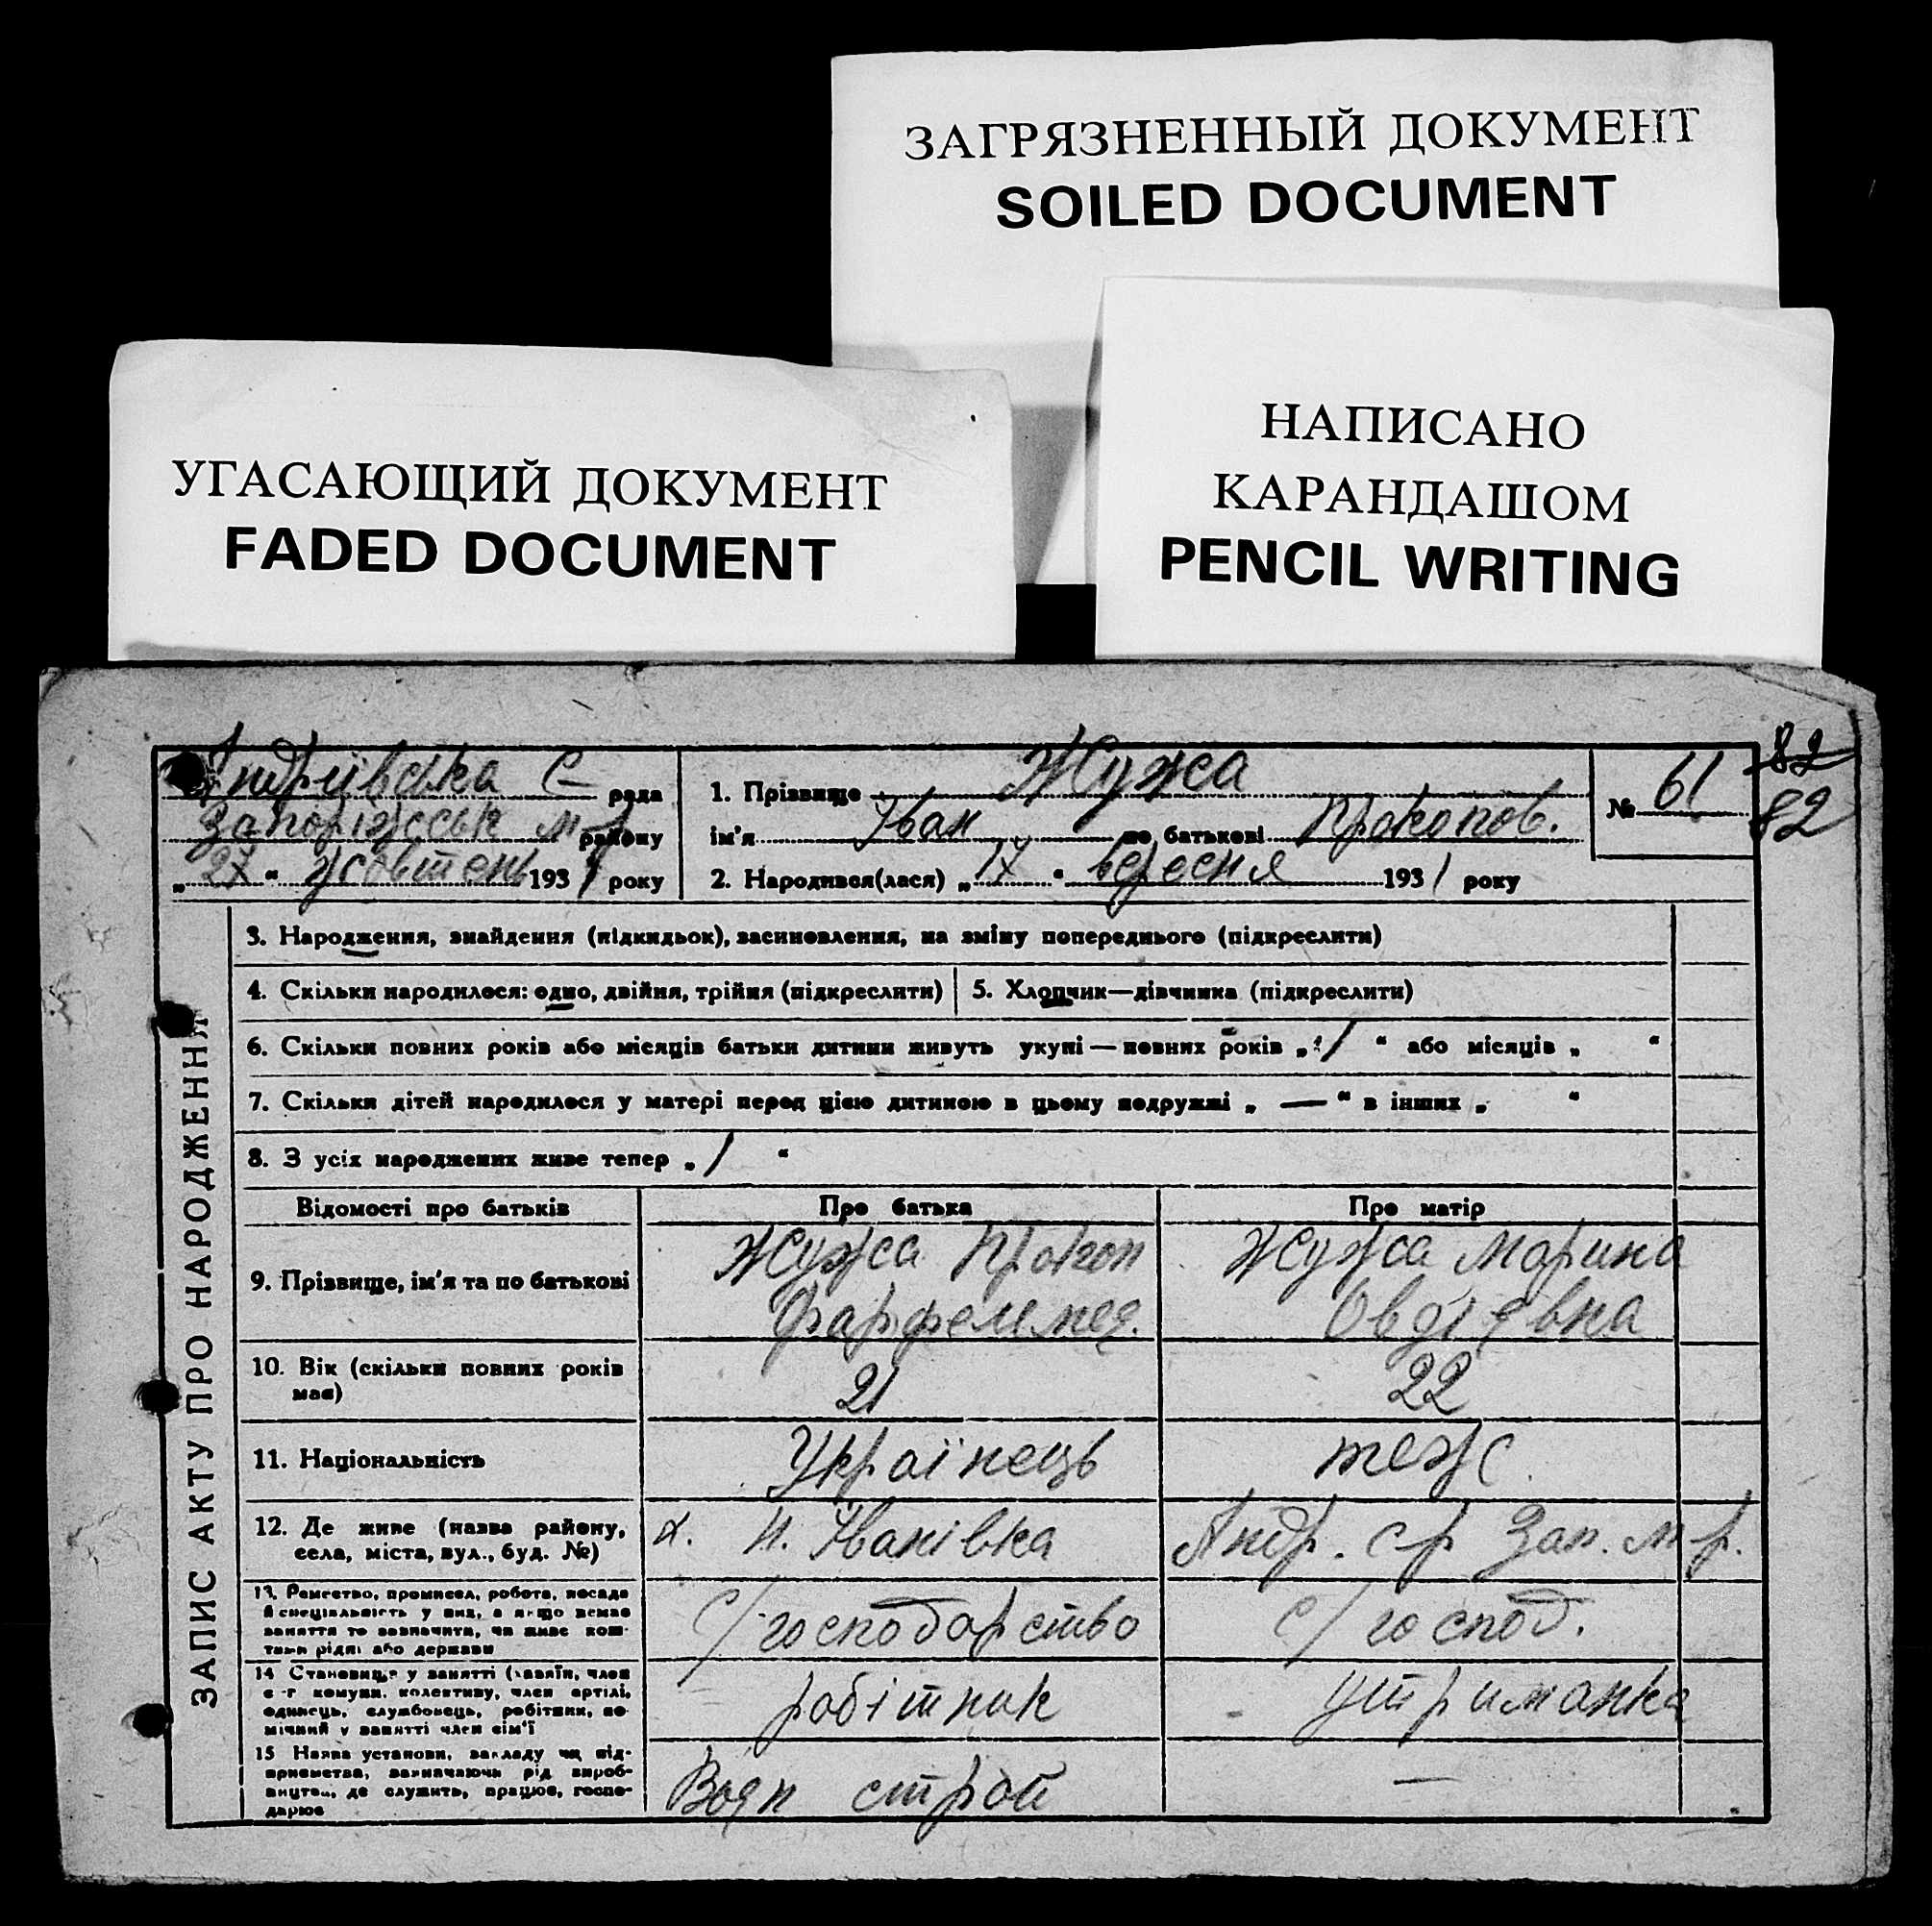 ЗАГРЯЗНЕННЫЙ ДОКУМЕНТ
SOILED DOCUMENT
НАПИСАНО
КАРАНДАШОМ
PENCIL WRITING
УГАСАЮЩИЙ ДОКУМЕНТ
FADED DOCUMENT
82
82
Андріївська С рада
Запоріжськ м р району
„27“ жовтень 1931 року
1. Прізвище Жужа
ім'я Іван по батькові Прокопов.
2. Народився(лася) „17“ вересня 1931 року
№ 61
ЗАПИС АКТУ ПРО НАРОДЖЕННЯ
3. Народження, знайдення (підкидьок), засиновлення, на зміну попереднього (підкреслити)
4. Скільки народилося: одно, двійня, трійня (підкреслити)
5. Хлопчик—дівчинка (підкреслити)
6. Скільки повних років або місяців батьки дитини живуть укупі — повних років „1“ або місяців „ “
7. Скільки дітей народилося у матері перед цією дитиною в цьому подружжі „—“ в інших „ “
8. З усіх народжених живе тепер „1“
Відомості про батьків
Про батька
Про матір
9. Прізвище, ім'я та по батькові
Жужа Прокоп
Жужа Марина
Овдіївна
10. Вік (скільки повних років має)
21
22
11. Національність
Українець
теж
12. Де живе (назва району, села, міста, вул., буд. №)
х. Н. Іванівка
Андр. с р Зап. м р.
13. Ремество, промисел, робота, посада й спеціяльність у них, а якщо немає заняття то зазначити, чи живе коштами рідні або держави
С/господарство
с/господ.
14 Становище у занятті (хазяїн, член с-г комуни, колективу, член артілі, одинець, службовець, робітник, помічний у занятті член сім'ї
робітник
утриманка
15 Назва установи, закладу чи підприємства, зазначаючи рід виробництва, де служить, працює, господарює
строй
—